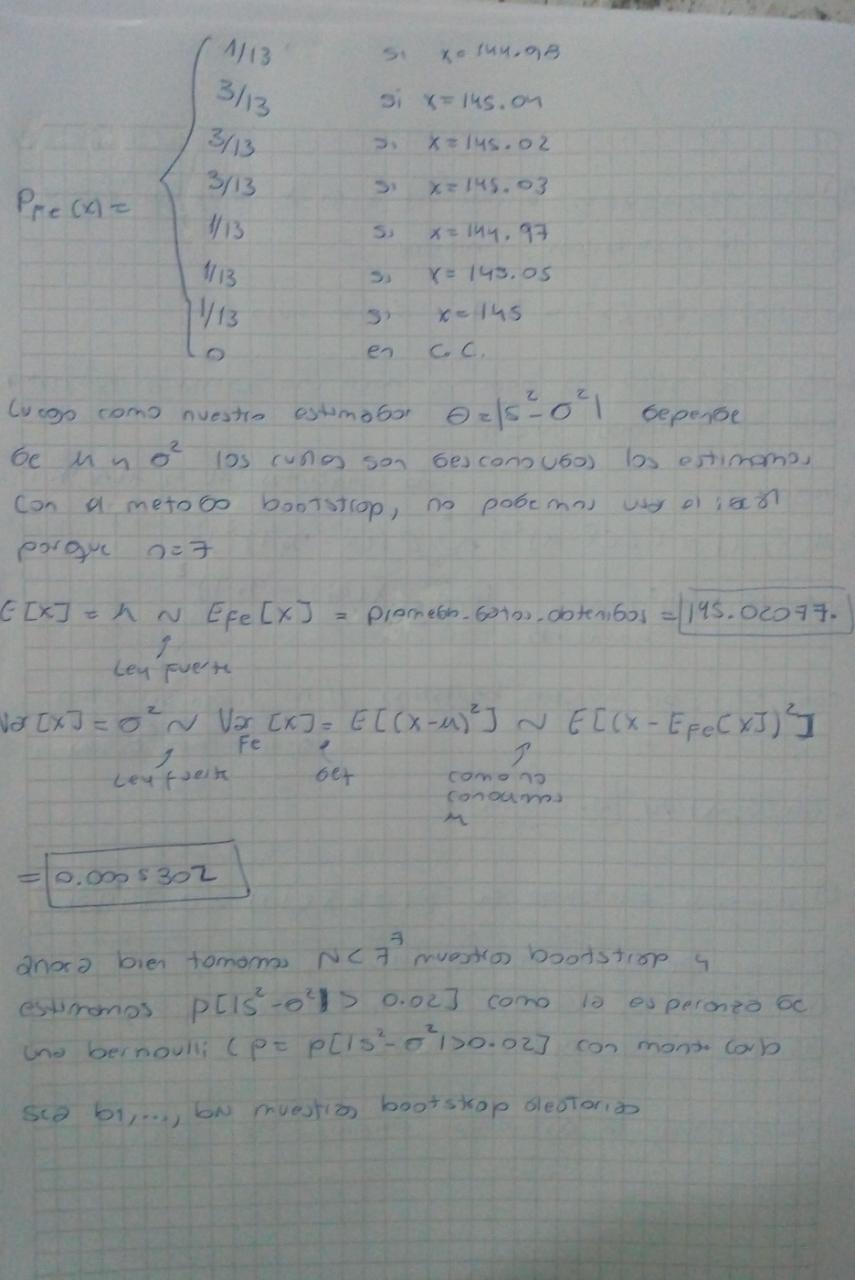 1/13 si x=144.98
3/13 si x=145.04
3/13 si x=145.02
3/13 si x=145.03
P_Fe(x)=
1/13 si x=144.97
1/13 si x=145.05
1/13 si x=145
0 en C.C.
Luego como nuestro estimador θ=|S²-σ²| depende
de μ y σ² los cuales son desconocidos los estimamos
con el metodo bootstrap, no podemos
porque n=7
E[X] = μ ~ E_Fe[X] = promedio.datos.obtenidos = 145.02077.
Ley fuerte
Var[X] = σ² ~ Var_Fe[X] = E[(X-μ)²] ~ E[(X-E_Fe[X])²]
Ley fuerte def como no
conocemos
μ
= 0.0005302
ahora bien tomamos N<7⁷ muestras bootstrap y
estimamos P[|S²-σ²|> 0.02] como la esperanza de
una bernoulli (p= P[|S²-σ²|>0.02] con monte carlo
sea b1,...,bN muestras bootstrap aleatorias